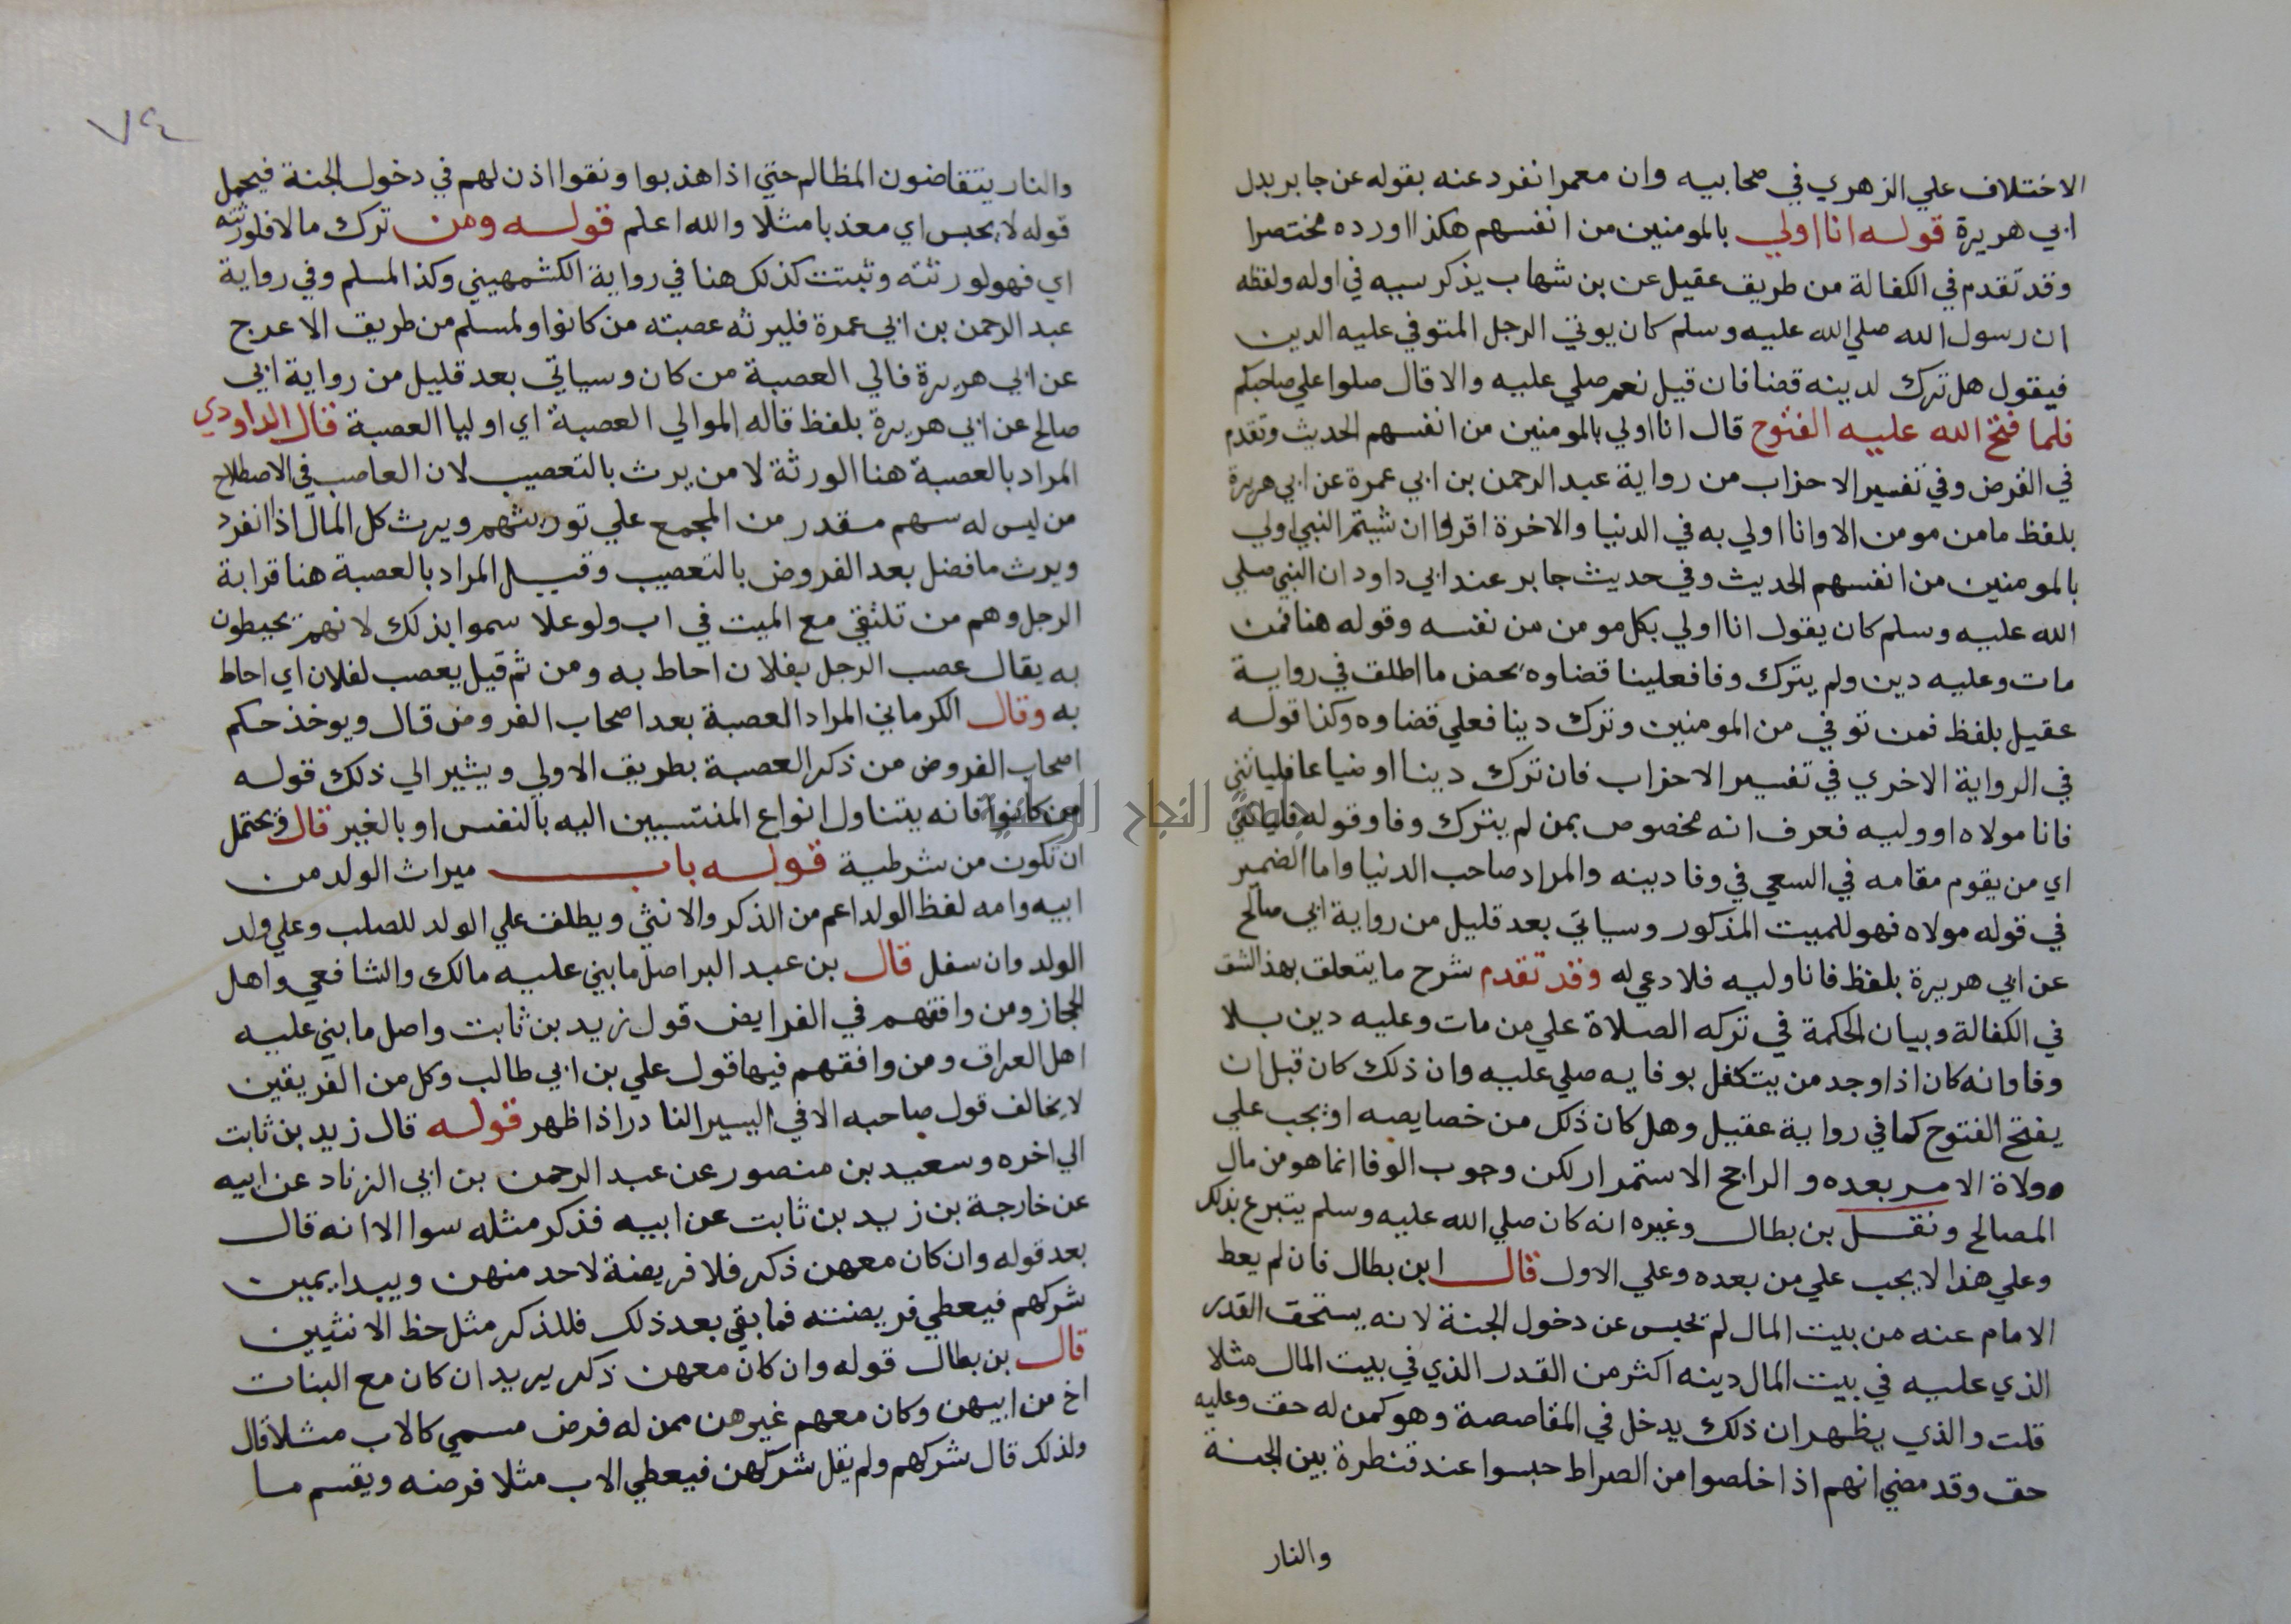 الاختلاف علي الزهري في صحابيه وان معمرا انفرد عنه بقوله عن جابر بدل
ابي هريرة قوله انا اولي بالمومنين من انفسهم هكذا اورده مختصرا
وقد تقدم في الكفالة من طريق عقيل عن بن شهاب يذكر سببه في اوله ولفظه
ان رسول الله صلي الله عليه وسلم كان يوتي الرجل المتوفي عليه الدين
فيقول هل ترك لدينه قضا فان قيل نعم صلي عليه والا قال صلوا علي صاحبكم
فلما فتح الله عليه الفتوح قال انا اولي بالمومنين من انفسهم الحديث وتقدم
في القرض وفي تفسير الاحزاب من رواية عبد الرحمن بن ابي عمرة عن ابي هريرة
بلفظ ما من مومن الا وانا اولي به في الدنيا والاخرة اقراوا ان شيتم النبي اولي
بالمومنين من انفسهم الحديث وفي حديث جابر عند ابي داود ان النبي صلي
الله عليه وسلم كان يقول انا اولي بكل مومن من نفسه وقوله هنا فمن
مات وعليه دين ولم يترك وفا فعلينا قضاوه يخص ما اطلق في رواية
عقيل بلفظ فمن توفي من المومنين وترك دينا فعلي قضاوه وكذا قوله
في الرواية الاخري في تفسير الاحزاب فان ترك دينا او ضياعا فلياتني
فانا مولاه او وليه فعرف انه مخصوص بمن لم يترك وفا وقوله فلياتني
اي من يقوم مقامه في السعي في وفا دينه والمراد صاحب الدنيا واما الضمير
في قوله مولاه فهو للميت المذكور وسياتي بعد قليل من رواية ابي صالح
عن ابي هريرة بلفظ فانا وليه فلا دعي له وقد تقدم شرح ما يتعلق بهذ الشق
في الكفالة وبيان الحكمة في تركه الصلاة علي من مات وعليه دين بلا
وفا وانه كان اذا وجد من يتكفل بوفايه صلي عليه وان ذلك كان قبل ان
يفتح الفتوح كما في رواية عقيل وهل كان ذلك من خصايصه او يجب علي
ولاة الامر بعده والراجح الاستمرار لكن وجوب الوفا انما هو من مال
المصالح ونقل بن بطال وغيره انه كان صلي الله عليه وسلم يتبرع بذلك
وعلي هذا لا يجب علي من بعده وعلي الاول قال ابن بطال فان لم يعط
الامام عنه من بيت المال لم يحبس عن دخول الجنة لانه يستحق القدر
الذي عليه في بيت المال دينه اكثر من القدر الذي في بيت المال مثلا
قلت والذي يظهر ان ذلك يدخل في المقاصصة وهو كمن له حق وعليه
حق وقد مضي انهم اذا خلصوا من الصراط حبسوا عند قنطرة بين الجنة
والنار
٧٤
والنار يتقاضون المظالم حتي اذا هذبوا ونقوا اذن لهم في دخول الجنة فيحمل
قوله لا يحبس اي معذبا مثلا والله اعلم قوله ومن ترك مالا فلورثته
اي فهو لورثته وثبتت كذلك هنا في رواية الكشمهيني وكذا لمسلم وفي رواية
عبد الرحمن بن ابي عمرة فليرثه عصبته من كانوا ولمسلم من طريق الاعرج
عن ابي هريرة فالي العصبة من كان وسياتي بعد قليل من رواية ابي
صالح عن ابي هريرة بلفظ قاله الموالي العصبة اي اوليا العصبة قال الداودي
المراد بالعصبة هنا الورثة لا من يرث بالتعصيب لان العاصب في الاصطلاح
من ليس له سهم مقدر من المجمع علي توريثهم ويرث كل المال اذا انفرد
ويرث ما فضل بعد الفروض بالتعصيب وقيل المراد بالعصبة هنا قرابة
الرجل وهم من تلتقي مع الميت في اب ولو علا سموا بذلك لانهم يحيطون
به يقال عصب الرجل بفلان احاط به ومن ثم قيل يعصب لفلان اي احاط
به وقال الكرماني المراد العصبة بعد اصحاب الفروض قال ويوخذ حكم
اصحاب الفروض من ذكر العصبة بطريق الاولي ويشير الي ذلك قوله
من كانوا فانه يتناول انواع المنتسبين اليه بالنفس او بالغير قال ويحتمل
ان تكون من شرطية قوله باب ميراث الولد من
ابيه وامه لفظ الولد اعم من الذكر والانثي ويطلق علي الولد للصلب وعلي ولد
الولد وان سفل قال بن عبد البر اصل ما بني عليه مالك والشافعي واهل
الحجاز ومن وافقهم في الفرايض قول زيد بن ثابت واصل ما بني عليه
اهل العراق ومن وافقهم فيها قول علي بن ابي طالب وكل من الفريقين
لا يخالف قول صاحبه الا في اليسير النادر اذا ظهر قوله قال زيد بن ثابت
الي اخره وسعيد بن منصور عن عبد الرحمن بن ابي الزناد عن ابيه
عن خارجة بن زيد بن ثابت عن ابيه فذكر مثله سوا الا انه قال
بعد قوله وان كان معهن ذكر فلا فريضة لاحد منهن ويبدا بمين
شركهم فيعطي فريضته فما بقي بعد ذلك فللذكر مثل حظ الانثيين
قال بن بطال قوله وان كان معهن ذكر يريد ان كان مع البنات
اخ من ابيهن وكان معهم غيرهن ممن له فرض مسمي كالاب مثلا قال
ولذلك قال شركهم ولم يقل شركهن فيعطي الاب مثلا فرضه ويقسم ما
جامعة النجاح الوطنية